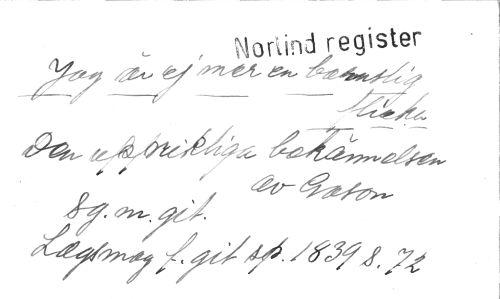 Norlind register
Jag är ej mer en barnslig
flicka
Den uppriktiga bekännelsen
av Gaston
Sg. m. git.
Lægsmag f. git sp. 1839 s. 72